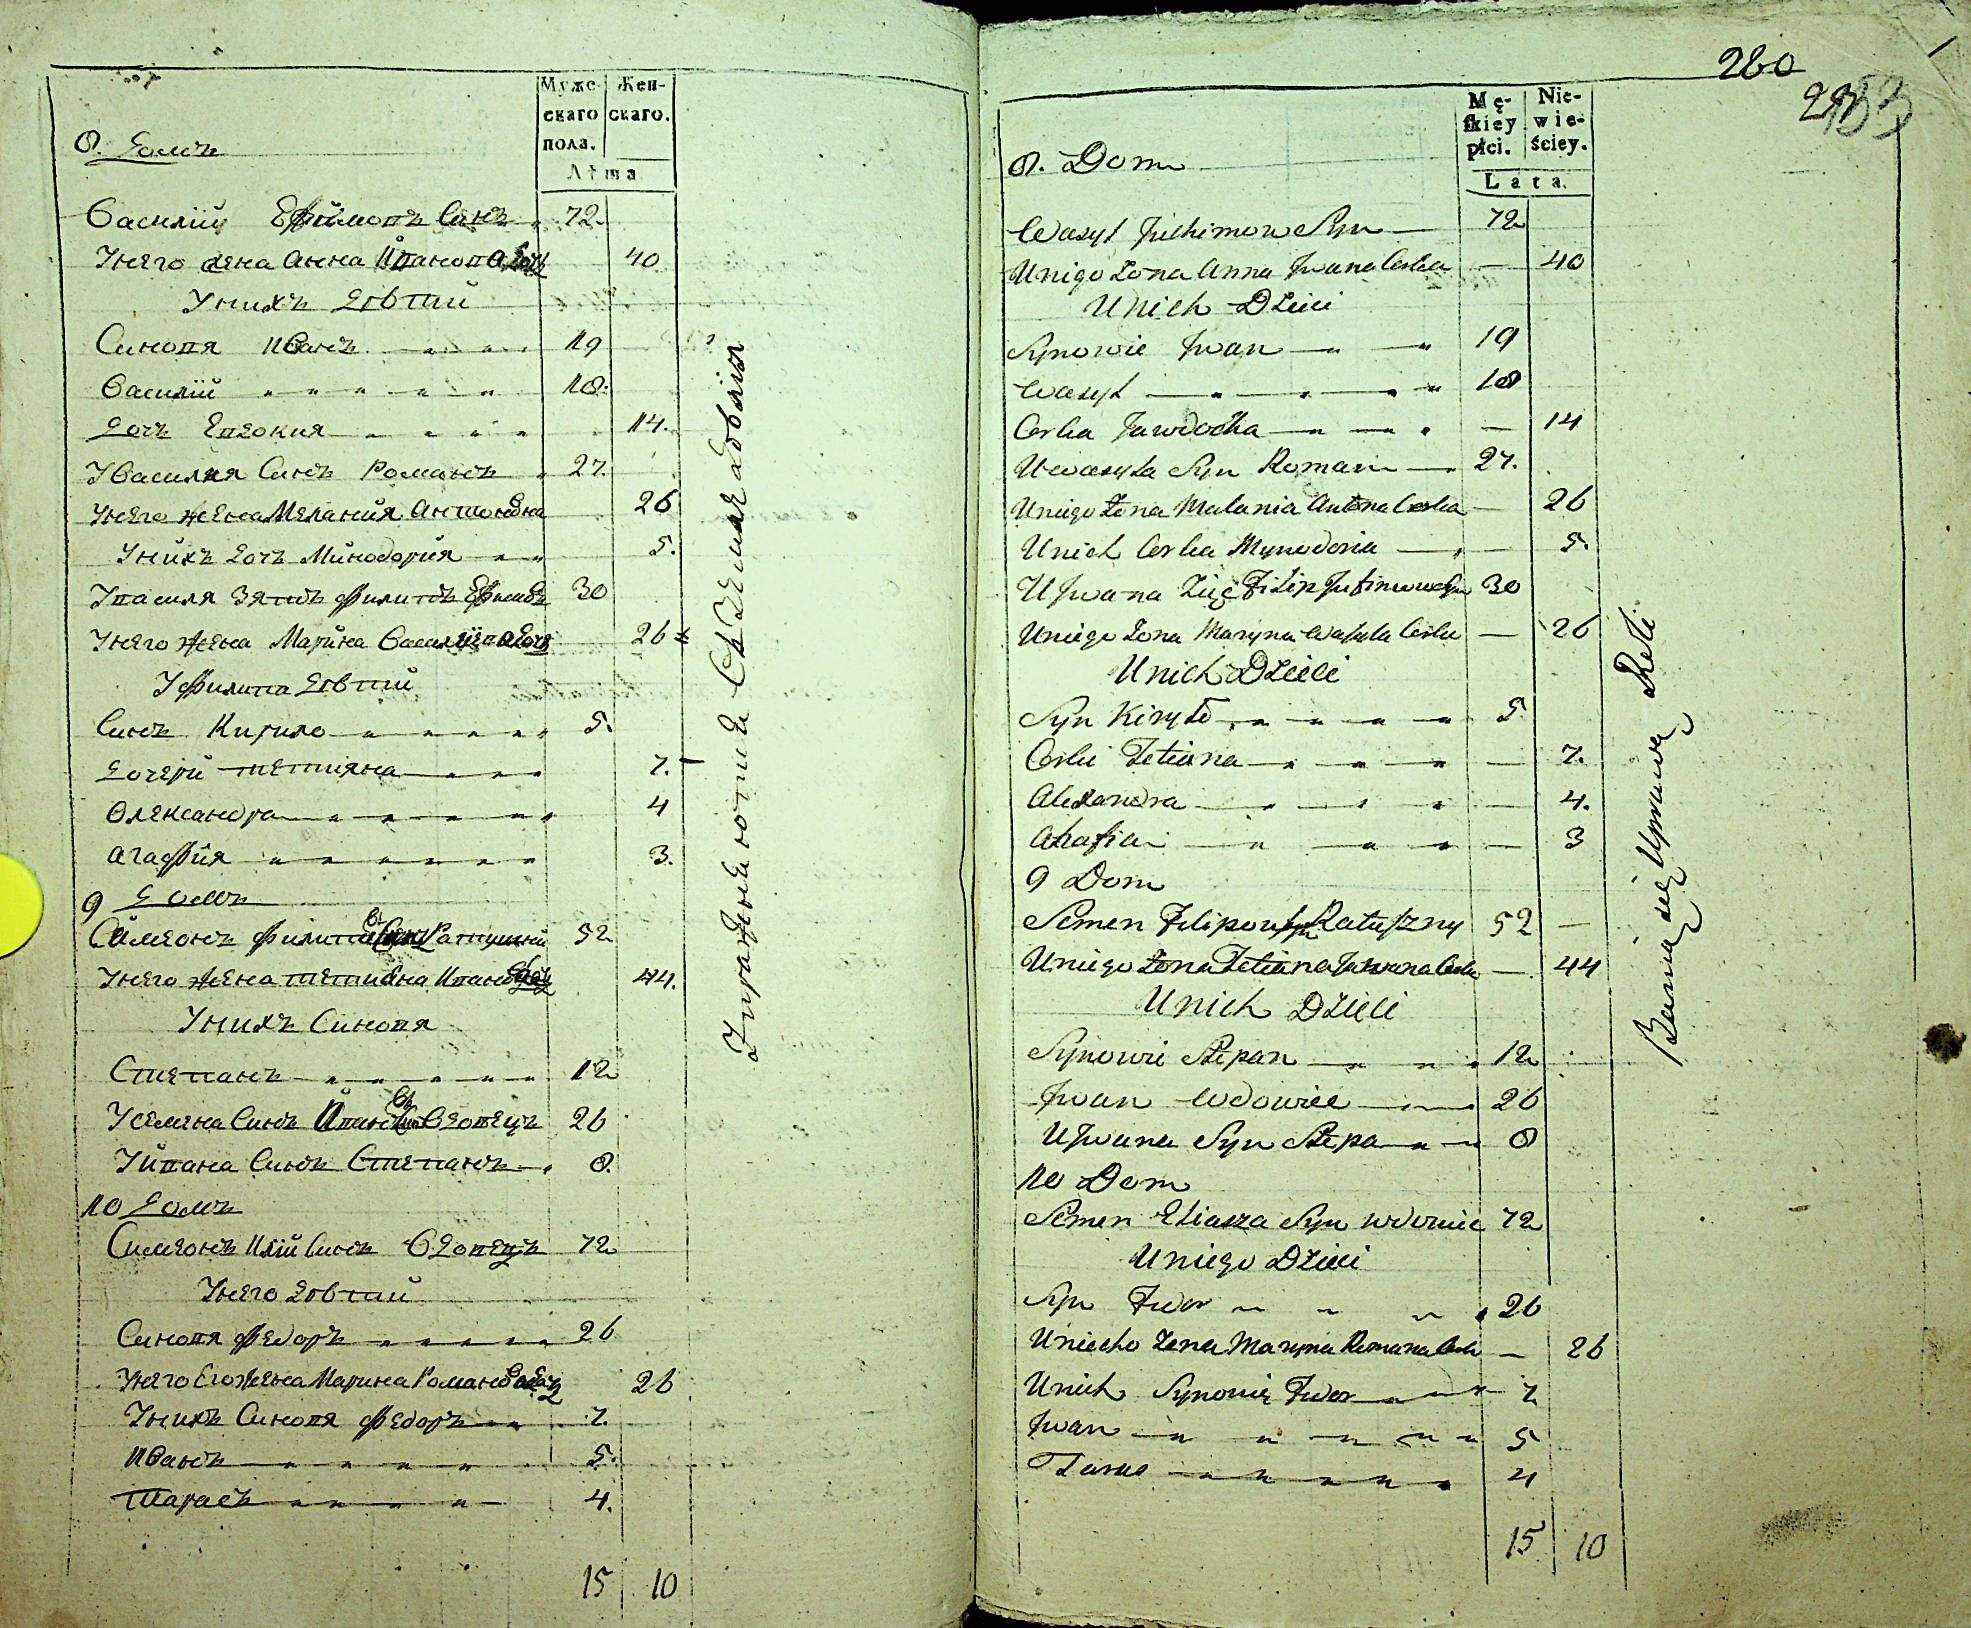 Муже-
скаго
пола.
Жен-
скаго.
Лѣта
8. Домъ
Василій Ефимовъ Синъ 72
Унего жена Анна Иванова дочь 40
Унихъ Дѣтий
Синовя Иванъ 19
Василій 18.
Дочъ Евдокия 14.
У Василия Синъ Романъ 27.
Унего жена Мелания Антоновна 26
Унихъ дочъ Минодория 5.
У василя Зять Филипъ Ефимовъ 30
Унего жена Марина Василиева дочъ 26
У Филипа Дѣтий
Синъ Кирило 5.
Дочери Тетияна 7.
Олександра 4
Агафия 3.
9 Домъ
Симеонъ Филиповъ Синъ Ратушний 52
Унего жена Тетиана Иванова дочъ 44.
Унихъ Синовя
Степанъ 12
У Семена Синъ Иванъ Вдовецъ 26
У Ивана Синъ Степанъ 8.
10 Домъ
Симеонъ Илїи Синъ Вдовецъ 72
Унего Дѣтий
Синовя Федоръ 26
Унего Его жена Марина Романова дочъ 26
Унихъ Синовя Федоръ 7.
Иванъ 5.
Тарасъ 4.
15 10
Упражняютце Схземлядѣлия
280
Mę-
skiey
płci.
Nie-
wie-
ściey.
Lata.
8. Dom
Wasyl Juchimow Syn 72
Unigo Zona Anna Jwana Corka 40
Unich Dzieci
Synowie Jwan 19
Wasyl 18
Corka Jawdocha 14
U Wasyla Syn Roman 27.
Uniego Zona Malania Antona Corka 26
Unich Corka Mynodoria 5.
U Jwana Zięć Filip Jufimow Syn 30
Uniego Zona Maryna Wasyla Corka 26
Unich Dzieci
Syn Kiryło 5
Corki Tetiana 7.
Alexandra 4.
Ahafia 3
9 Dom
Semen Filipow Syn Ratuszny 52
Uniego Zona Tetiana Jwana Corka 44
Unich Dzieci
Synowie Stepan 12
Jwan Wdowiec 26
U Jwana Syn Stepan 8
10 Dom
Semen Eliasza Syn wdowiec 72
Uniego Dzieci
Syn Fedor 26
Uniecho Zena Maryna Romana Corka 26
Unich Synowie Fedor 7
Jwan 5
Taras 4
15 10
Bawią się Uprawą Roli